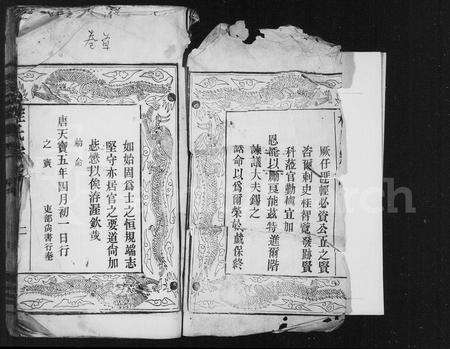 首
卷
厥任匪輕必資公正之賢
咨爾刺史桂稱覽發跡賢
科蒞官勤慎宜加
恩誥以顯良能茲特進爾階
諫議大夫錫之
誥命以爲爾榮於戲保終
如始固爲士之恒規端志
堅守亦居官之要道尚加
懋懋以俟渥欽哉
勅命
唐天寶五年四月初一日行
之寶
吏部尚書行奉